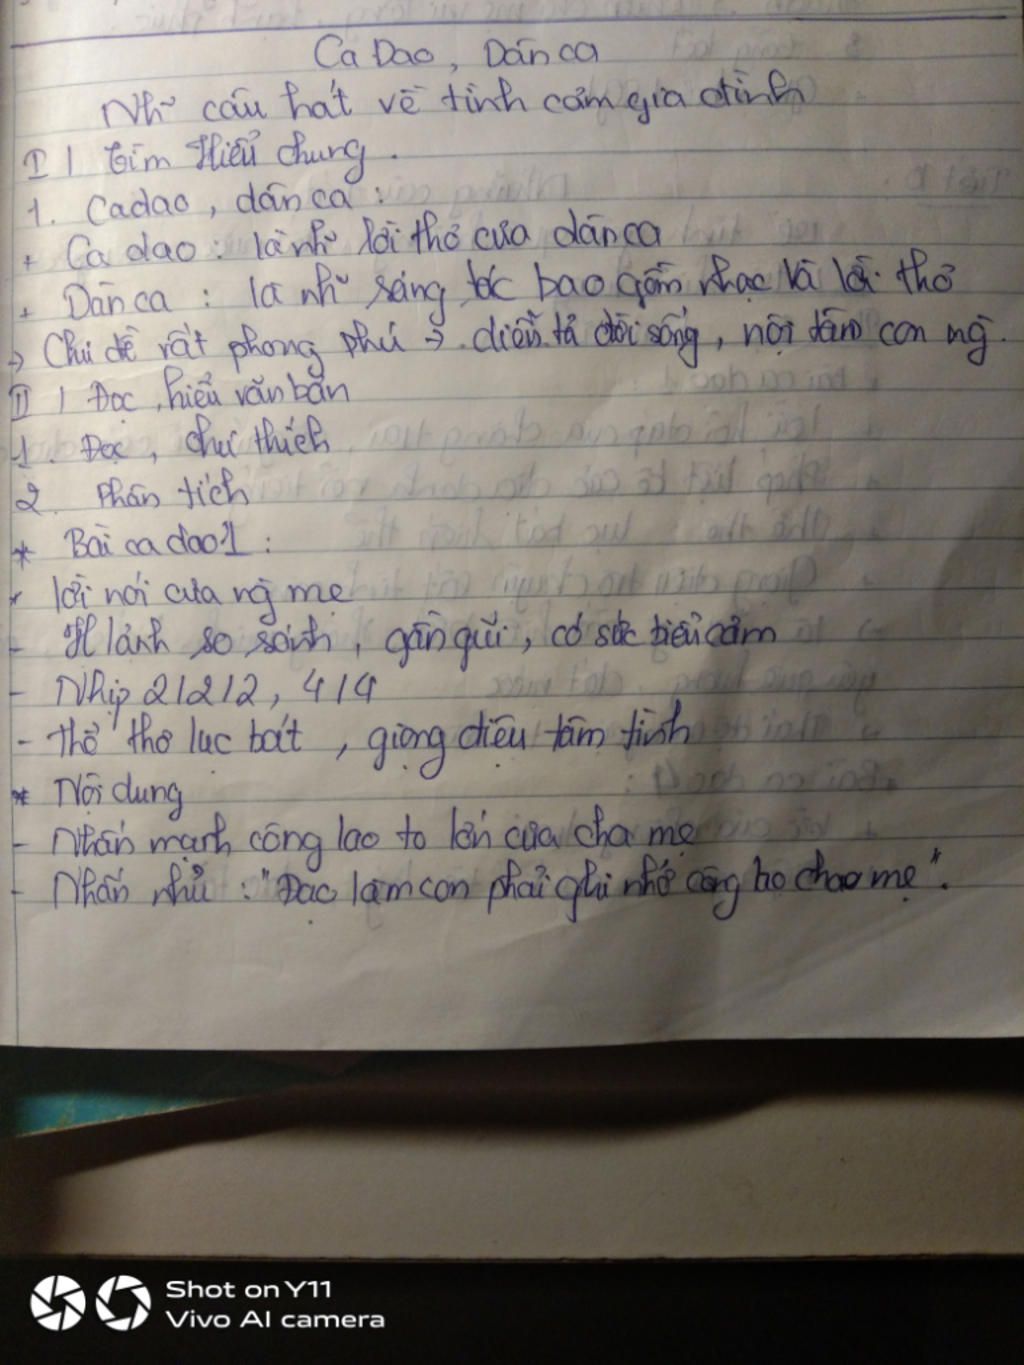 Ca Dao, Dân ca
Nhữ câu hát về tình cảm gia đình
I / tìm Hiểu chung.
1. Ca dao, dân ca :
+ Ca dao : là nhữ lời thơ của dân ca
+ Dân ca : là nhữ sáng tác bao gồm nhạc và lời thơ
→ Chủ đề rất phong phú → diễn tả đời sống, nội tâm con ng.
II / Đọc, hiểu văn bản
1. Đọc, chú thích
2. Phân tích
* Bài ca dao 1 :
* lời nói của ng mẹ
- H/ảnh so sánh, gần gũi, có sức biểu cảm
- Nhịp 2/2/2, 4/4
- thể thơ lục bát, giọng điệu tâm tình
* Nội dung
- Nhấn mạnh công lao to lớn của cha mẹ
- Nhắn nhủ : "Đạo làm con phải ghi nhớ công ho chao mẹ".
Shot on Y11
Vivo AI camera